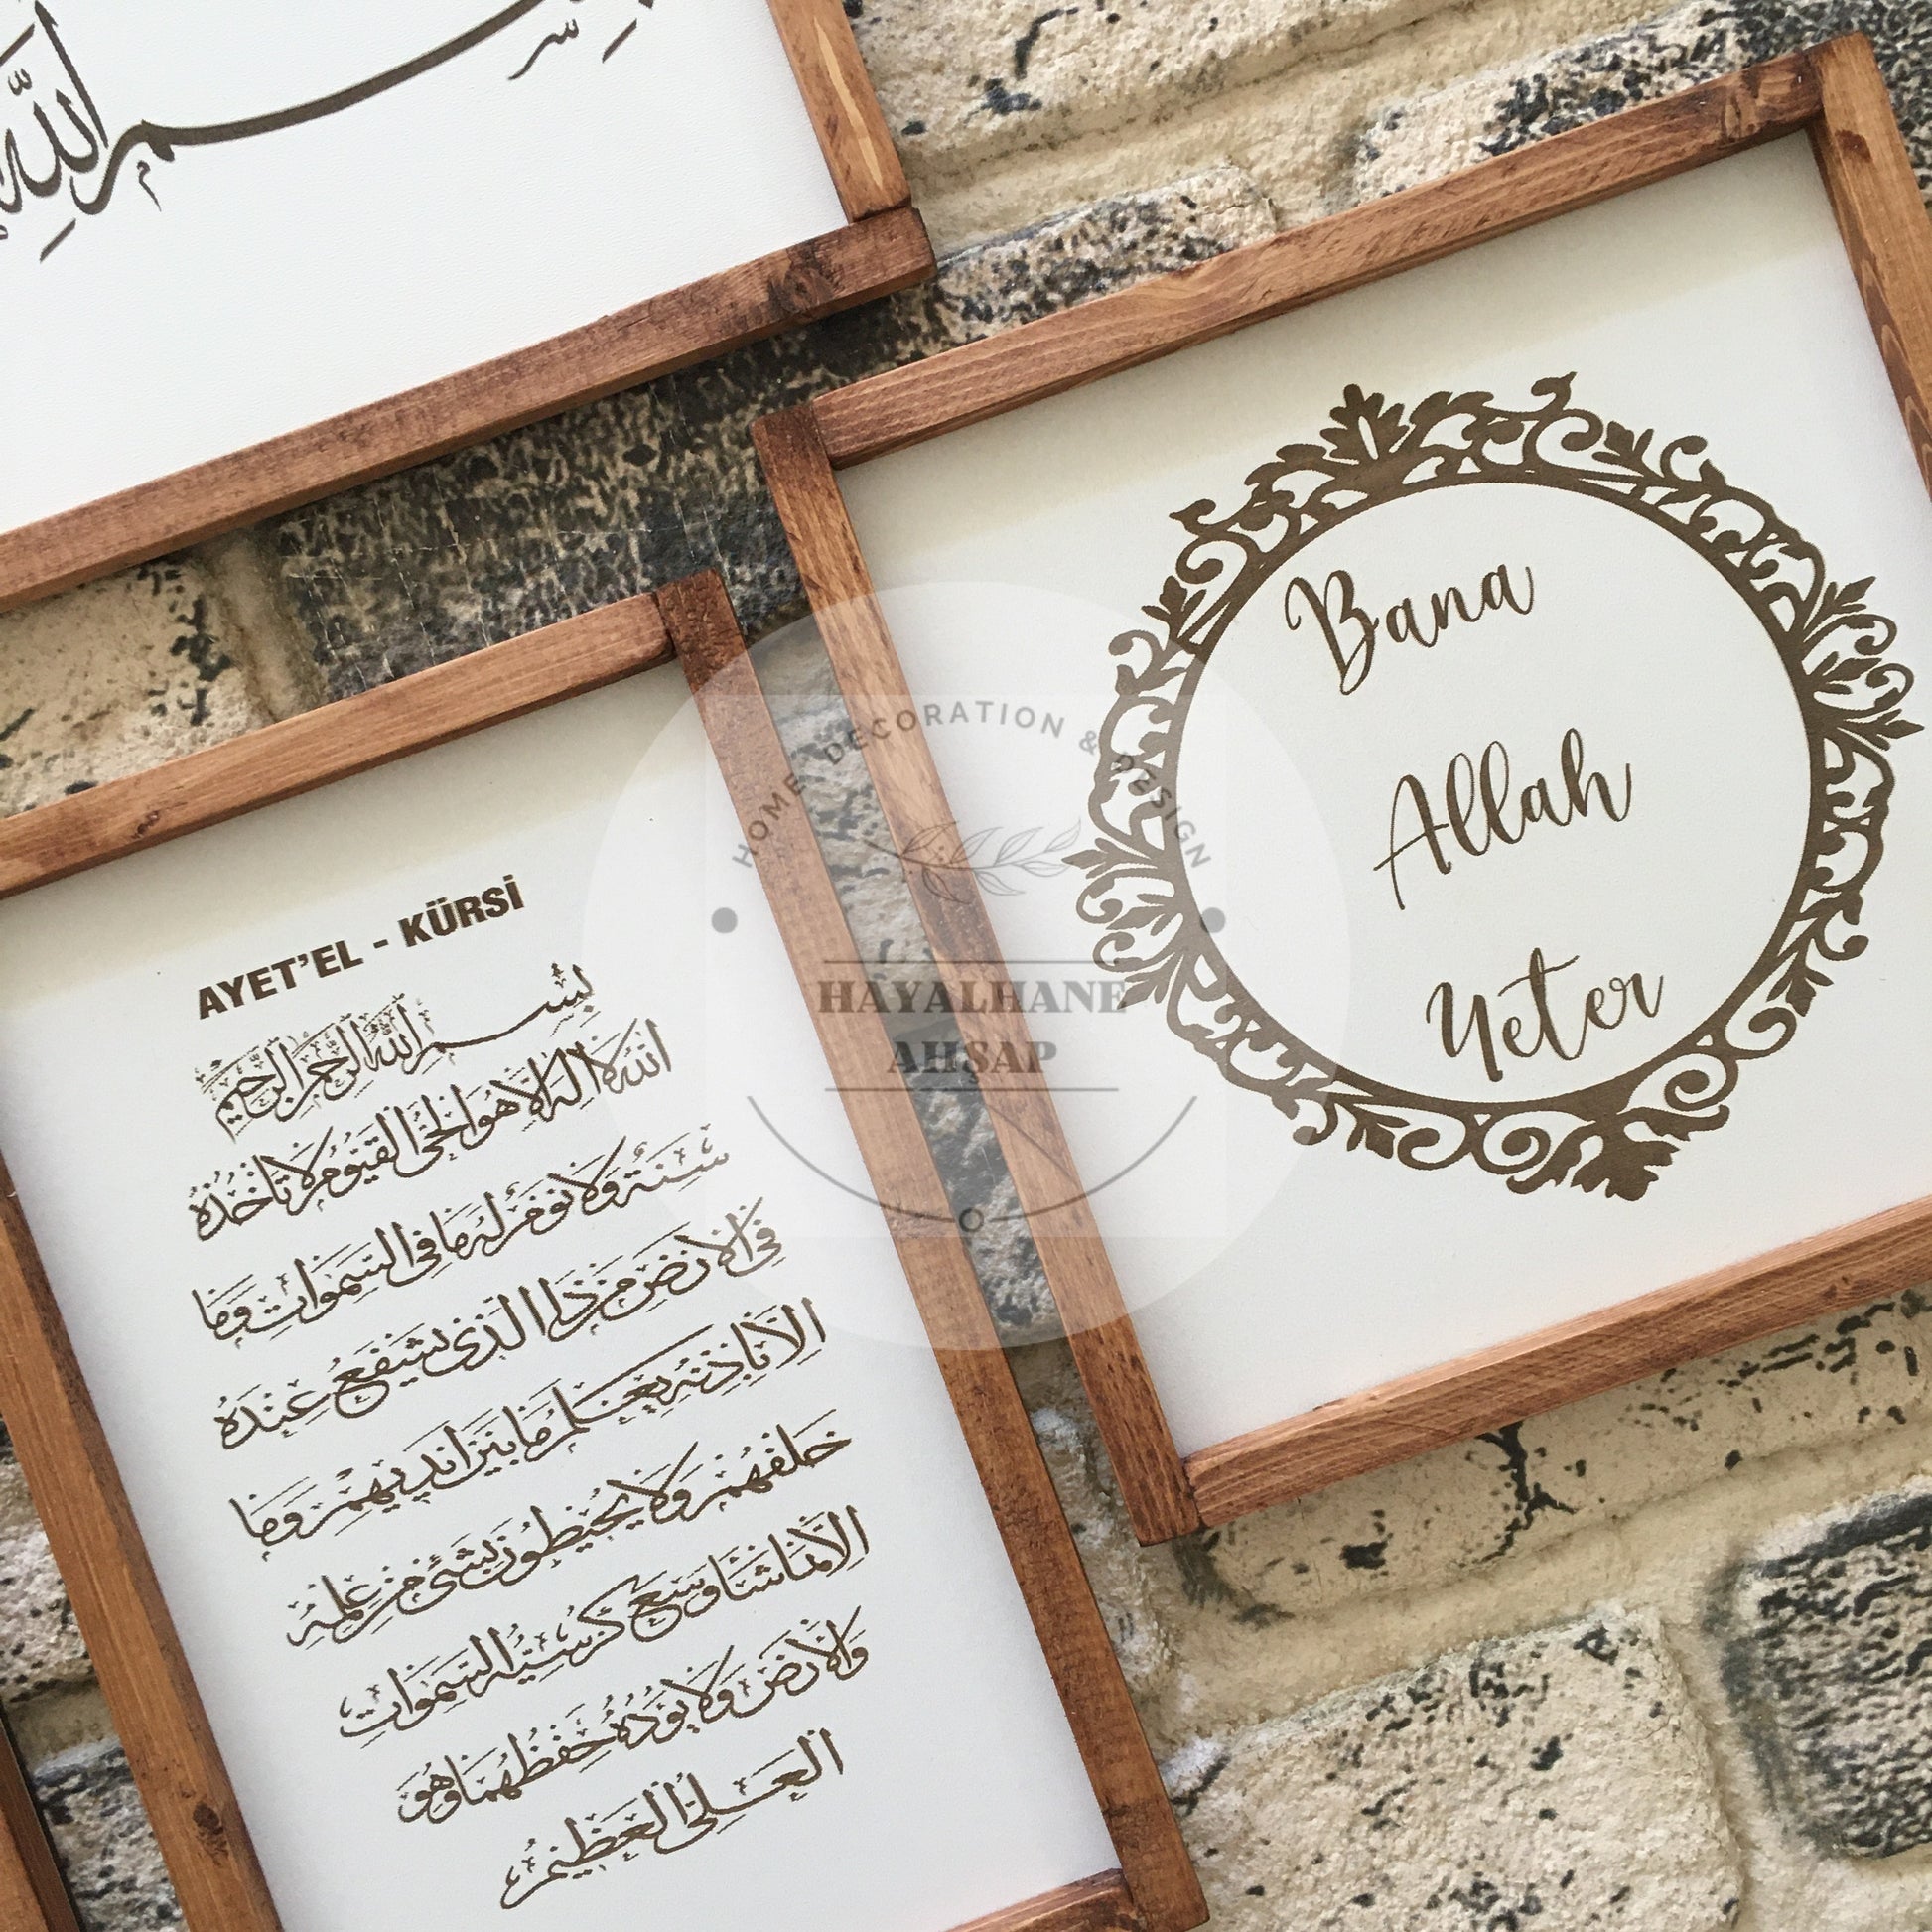 بسم الله
AYET'EL - KÜRSİ
بِسْمِ اللّٰهِ الرَّحْمٰنِ الرَّحِيمِ
اَللّٰهُ لَا اِلٰهَ اِلَّا هُوَ الْحَيُّ الْقَيُّومُ لَا تَأْخُذُهُ
سِنَةٌ وَلَا نَوْمٌ لَهُ مَا فِي السَّمٰوَاتِ وَمَا
فِي الْاَرْضِ مَنْ ذَا الَّذِي يَشْفَعُ عِنْدَهُ
اِلَّا بِاِذْنِهِ يَعْلَمُ مَا بَيْنَ اَيْدِيهِمْ وَمَا
خَلْفَهُمْ وَلَا يُحِيطُونَ بِشَيْءٍ مِنْ عِلْمِهِ
اِلَّا بِمَا شَاءَ وَسِعَ كُرْسِيُّهُ السَّمٰوَاتِ
وَالْاَرْضَ وَلَا يَؤُدُهُ حِفْظُهُمَا وَهُوَ
الْعَلِيُّ الْعَظِيمُ
Bana
Allah
Yeter
HOME DECORATION & DESIGN
HAYALHANE
AHŞAP